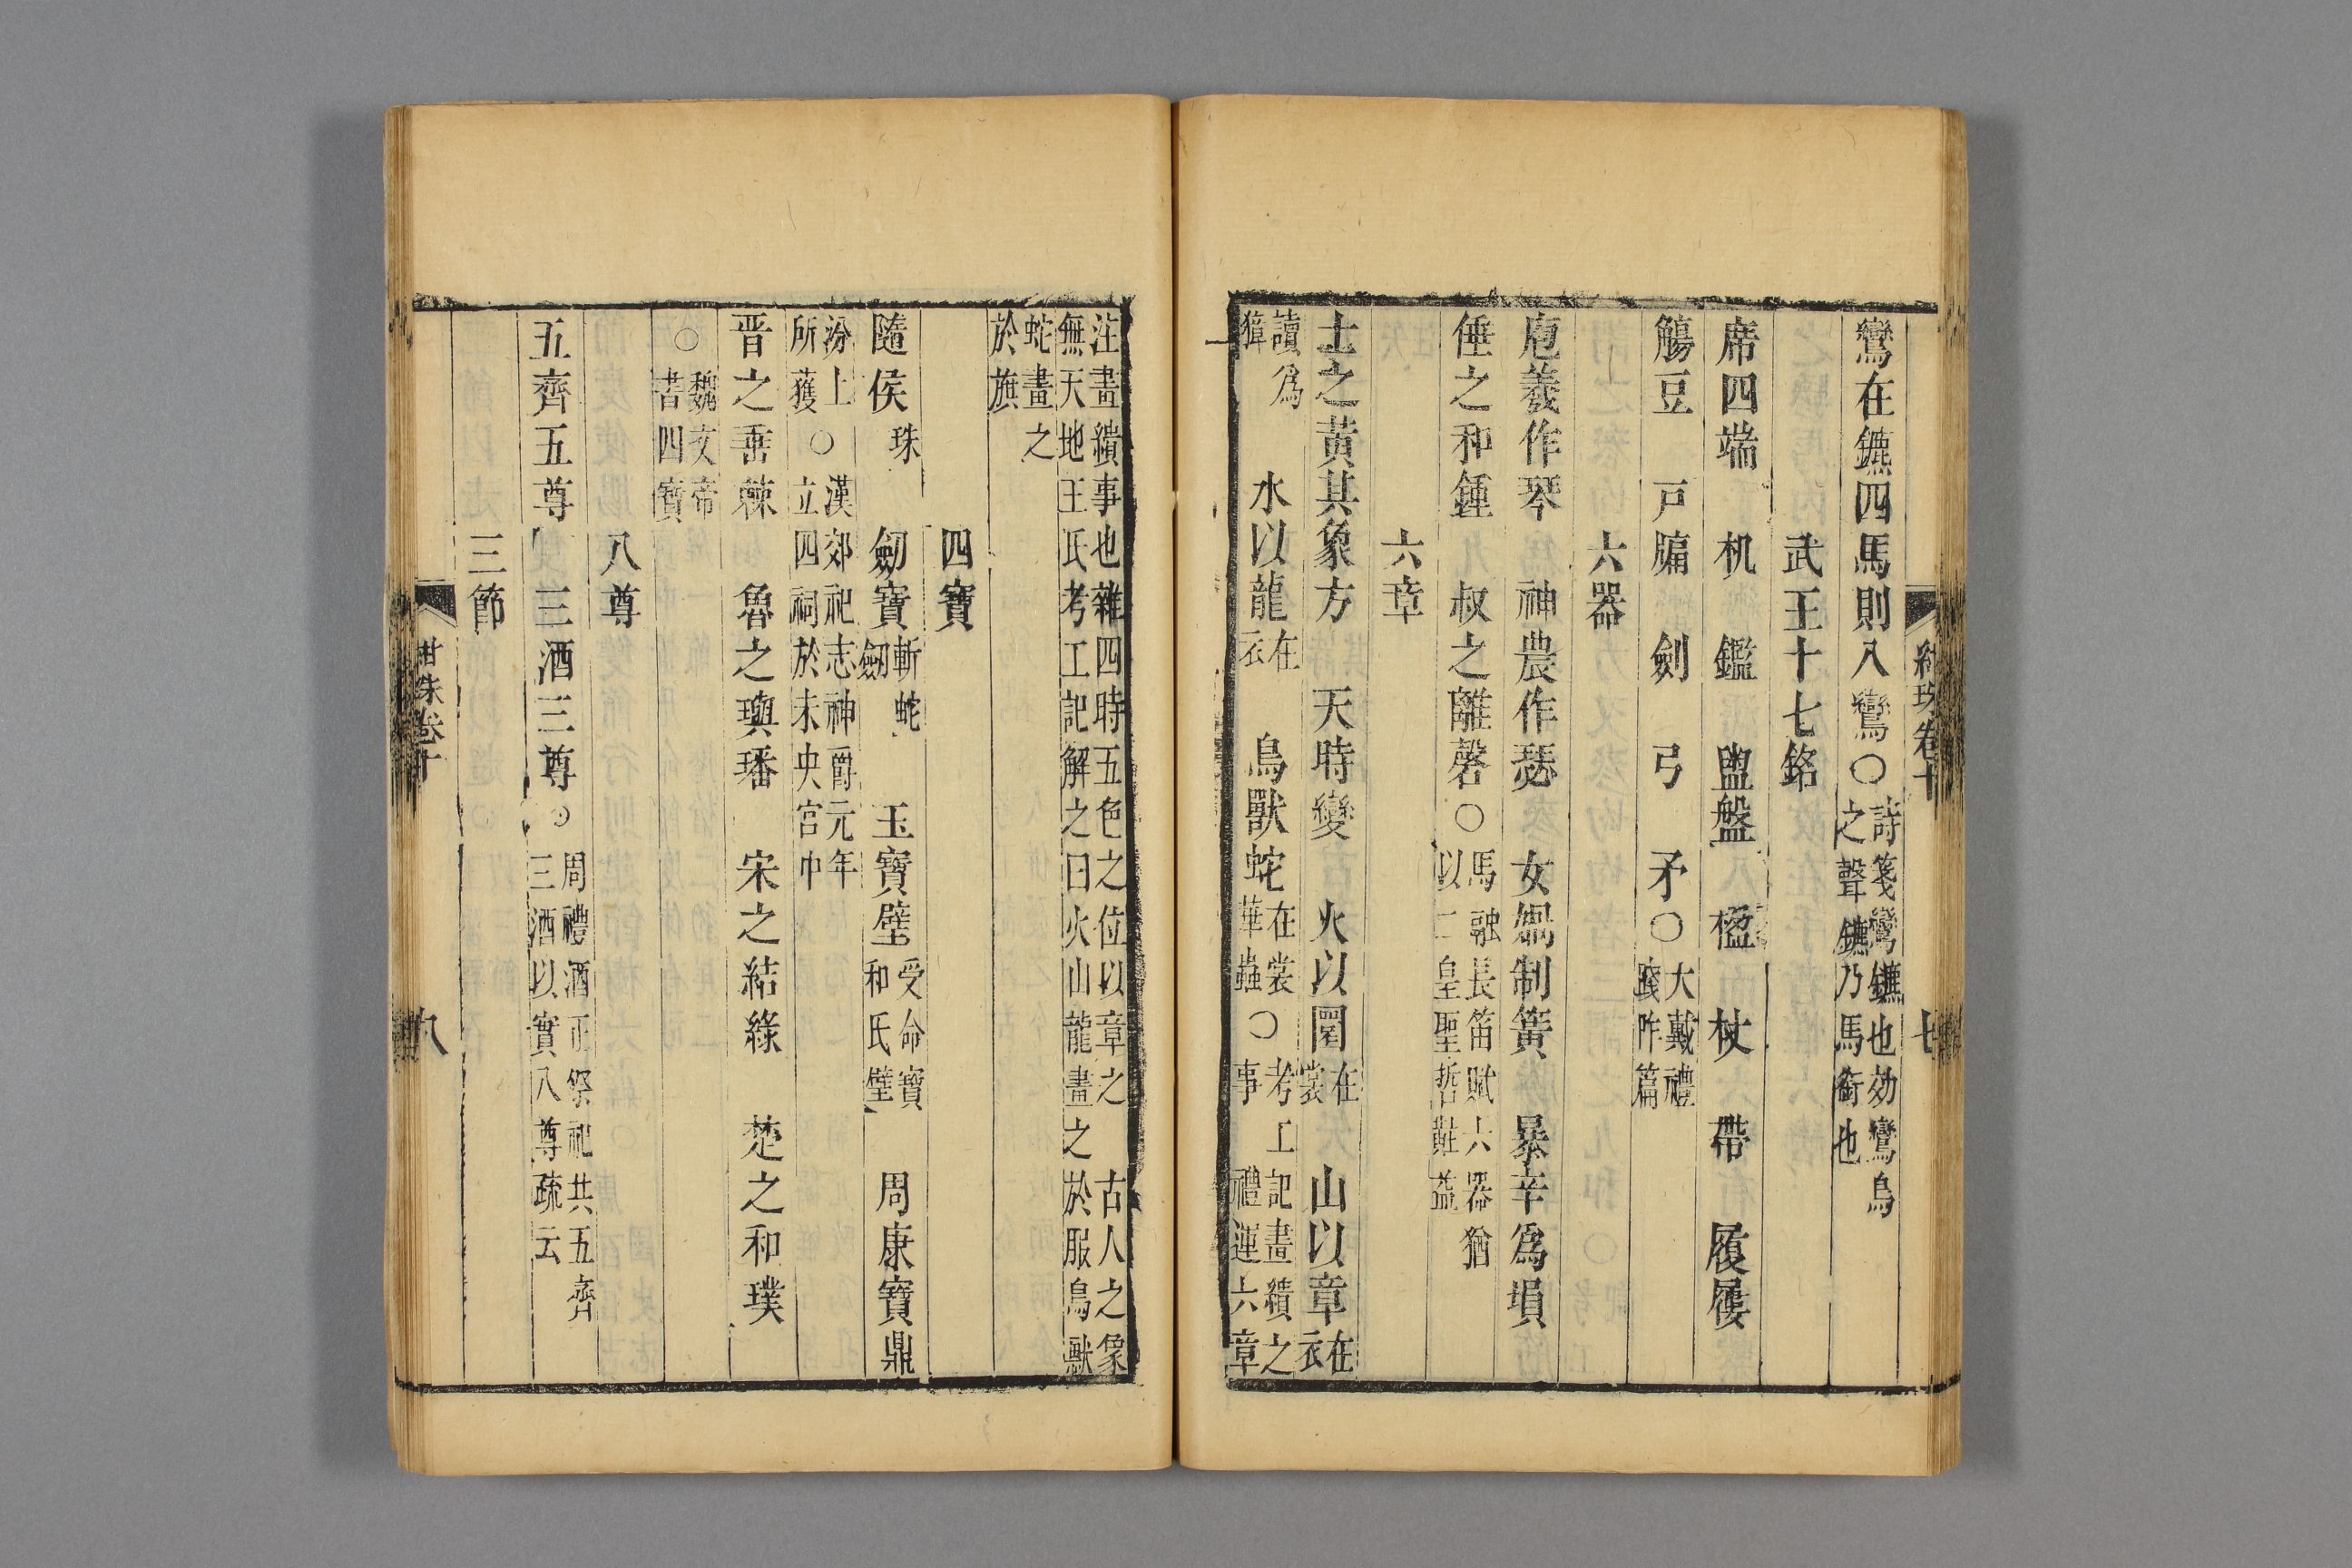 鸞在鑣四馬則八鸞〇詩箋鸞鑣也効鸞鳥之聲鑣乃馬銜也
武王十七銘
席四端 机 鑑 盥盤 楹 杖 帶 履屨
觴豆 戸牖 劍 弓 矛〇大戴禮踐阼篇
六器
庖羲作琴 神農作瑟 女媧制簧 暴辛爲塤
倕之和鍾 叔之離磬〇馬融長笛賦六器猶以二皇聖哲黈益
六章
土之黃其象方 天時變 火以圜在裳 山以章在衣
讀爲獐 水以龍在衣 鳥獸蛇在裳華蟲〇考工記畫繢之事禮運六章
注畫繢事也雜四時五色之位以章之 古人之象
無天地王氏考工記解之曰火山龍畫之於服鳥獸
蛇畫之於旗
四寶
隨侯珠 劒寶斬蛇劒 玉寶璧受命寶和氏璧 周康寶鼎
汾上所獲〇漢郊祀志神爵元年立四祠於未央宫中
晋之垂棘 魯之璵璠 宋之結綠 楚之和璞
〇魏文帝書四寶
八尊
五齊五尊 三酒三尊〇周禮酒正祭祀共五齊三酒以實八尊疏云
三節
紺珠卷十
七
紺珠卷十
八